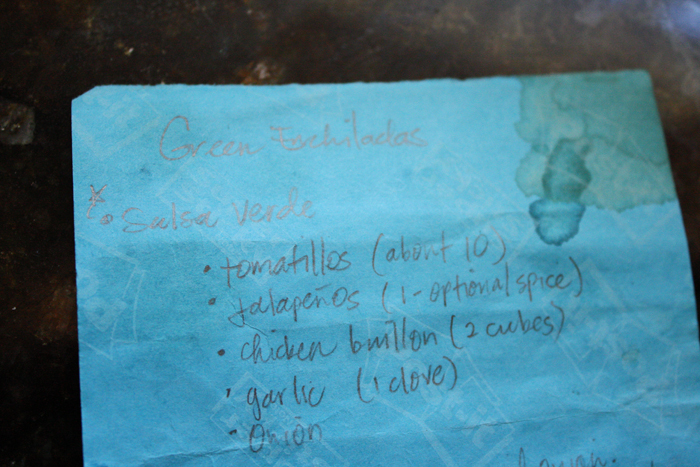 Green Enchiladas
* • Salsa Verde
• tomatillos (about 10)
• jalapeños (1-optional spice)
• chicken buillon (2 cubes)
• garlic (1 clove)
• onion